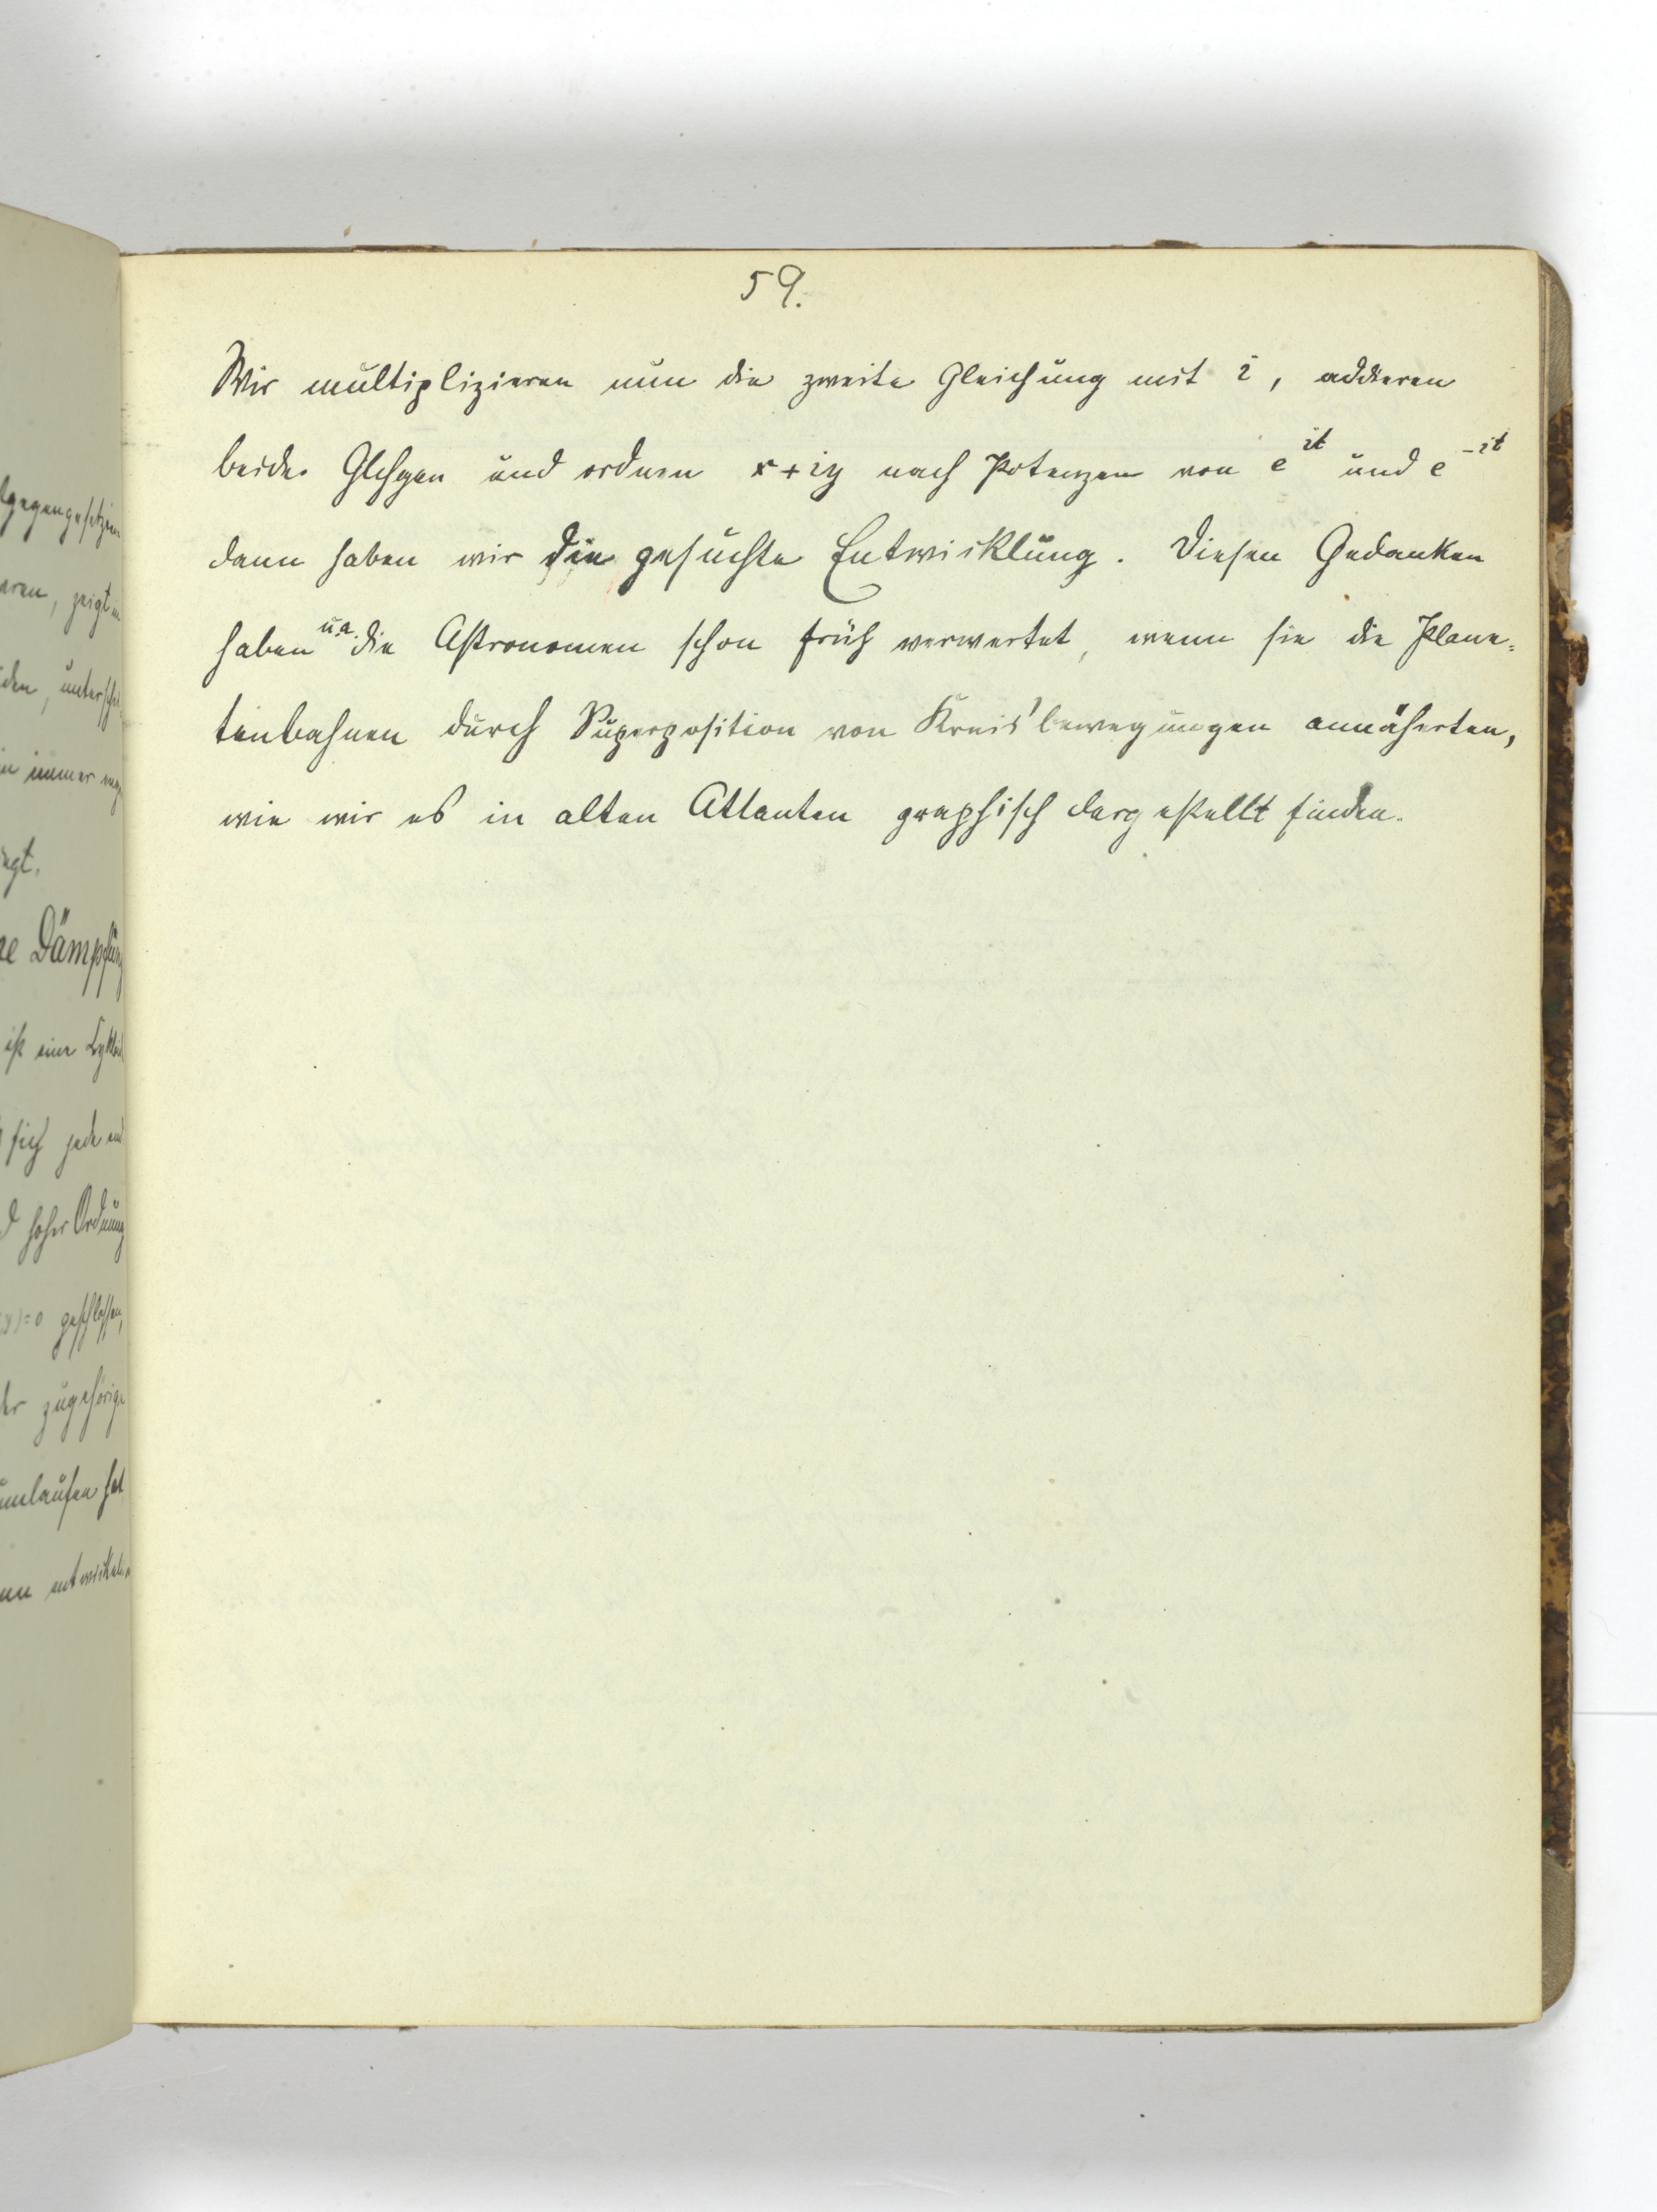 59.
Wir multiplizieren nun die zweite Gleichung mit i, addieren
beide Glchgen und ordnen x+iy nach Potenzen von e^{it} und e^{-it}
dann haben wir die gesuchte Entwicklung. Diesen Gedanken
haben u.a. die Astronomen schon früh verwertet, wenn sie die Plane=
tenbahnen durch Superposition von Kreisbewegungen annäherten,
wie wir es in alten Atlanten graphisch dargestellt finden.
ren, zeigt
immer
Dämpfung
ist eine
sich jede
hoher Ordnung
=0 geschlossen,
der zugehörige
umlaufen hat